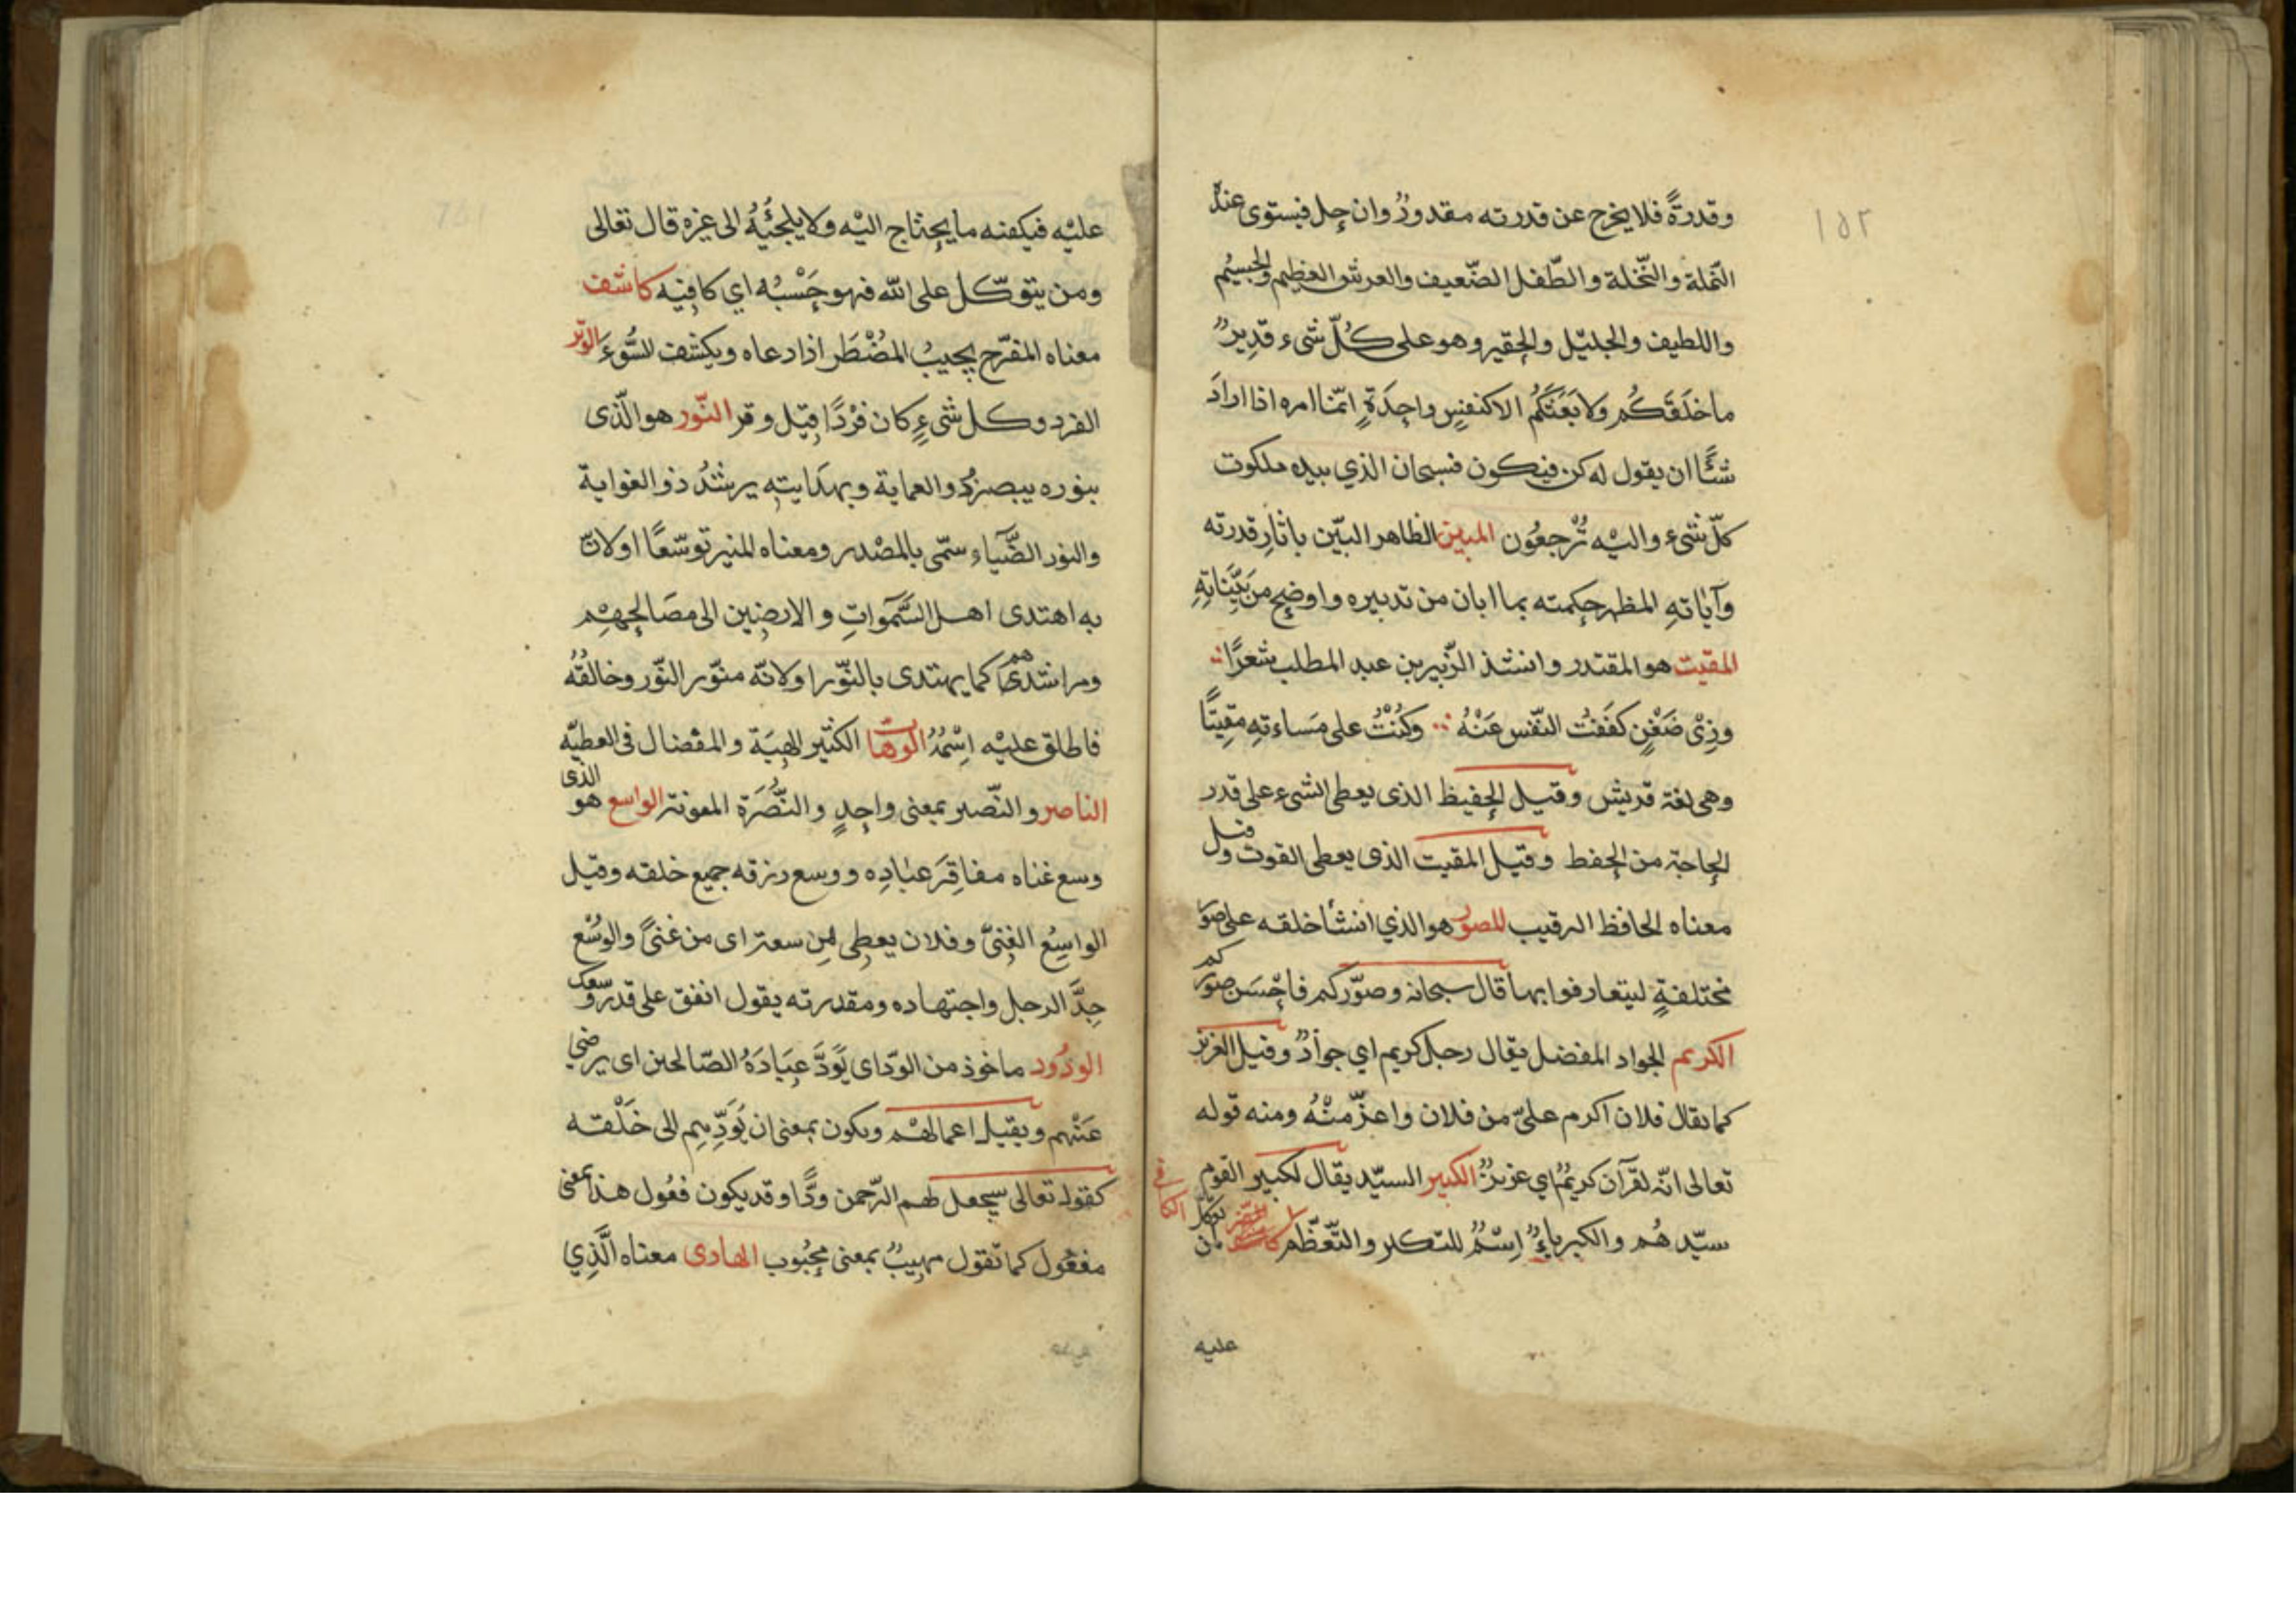 ١٥٢
وقدرةً فلا يخرج عن قدرته مقدورٌ وان جل فيستوى عنده
النّملة والنّخلة والطّفل الضّعيف والعرش العظيم والجسيم
واللطيف والجليل والحقير وهو على كُلّ شىء قدِيرٌ
ما خلَقَكُم ولا بَعَثَكُم الا كنفسٍ واحِدَةٍ اِنّما امره اذا ارادَ
شَئًا ان يقول له كن فيكون فسبحان الذي بيده ملكوت
كلّ شىء واليْه تُرْجعُون المبين الظاهر البيّن باثارِ قدرته
وآياتهِ المظهر حكمته بما ابان من تدبيره واوضح من بَيّناتِهِ
المقيت هو المقتدر وانشد الزّبير بن عبد المطلب شعرًا
وذِىْ ضَغْنٍ كفَفتُ النّفس عَنْهُ وكُنْتُ على مَساءتهِ مقِيتًا
وهى لغة قريش وقيل الحفيظ الذى يعطى الشىء على قدر
الحاجة من الحفظ وقيل المقيت الذى يعطى القوت وقيل
معناه الحافظ الرقيب المصور هو الذي انشأ خلقه على صوَر
مختلفةٍ ليتعارفوا بها قال سبحانه وصوّركم فاحْسَن صوركم
الكريم الجواد المفضل يقال رجل كريم اي جوادٌ وقيل العزيز
كما يقال فلان اكرم علىّ من فلان واعزّ منْهُ ومنه قوله
تعالى انّه لقرآن كريمٌ اي عزيزٌ الكبير السيّد يقال لكبير القوم
سيّدهُم والكبرياءُ اِسْمٌ للتكبر والتّعظّم
عليه
عليْه فيكفنه ما يحتاج اليْه ولا يلجئُهُ الى غيره قال تعالى
ومن يتوكّل على الله فهو حَسْبُه اي كافِيه كاشف
معناه المفرّج يجيبُ المُضْطَر اذا دعاه ويكشف السُّوءَ الوتر
الفرد وكل شىءٍ كان فرْدًا قيل وتر النّور هو الّذى
بنوره يبصر ذو العماية وبهدَايتِهِ يرشدُ ذو الغواية
والنور الضّيآء سمّى بالمصْدر ومعناه المنير توسّعًا اولانّ
به اهتدى اهل السَّموَاتِ والارضِين الى مصَالحِهِم
ومراشدهم كما يهتدى بالنّور اولانّه منوّر النّور وخالقُهُ
فاطلق عليْه اِسْمُهُ الوهاب الكثير الهِبَة والمفضال فى العطيّه
الناصر والنّصير بمعنى واحِدٍ والنُّصْرَة المعونة الواسع هو الذى
وسع غناه مفاقِرَ عبَادِه ووسع رزقه جميع خلقه وقيل
الواسِعُ الغنىّ وفلان يعطِى من سعة اى من غنىً والوُسْع
جدَّ الرجل واجتهاده ومقدرته يقول انفق على قدر وسعك
الودُود ماخوذ من الودّ اى يَوَدَّ عِبَادَهُ الصّالحين اى يرضى
عَنْهم ويقبل اعمالهْم ويكون بمعنى ان يُوَدِّهِم الى خَلْقه
كقوله تعالى سيجعل لهم الرّحمن ودًّا وقد يكون فعُول هذا بمعنى
مفعُول كما تقول مهِيبٌ بمعنى محبُوب الهادى معناه الَّذِي